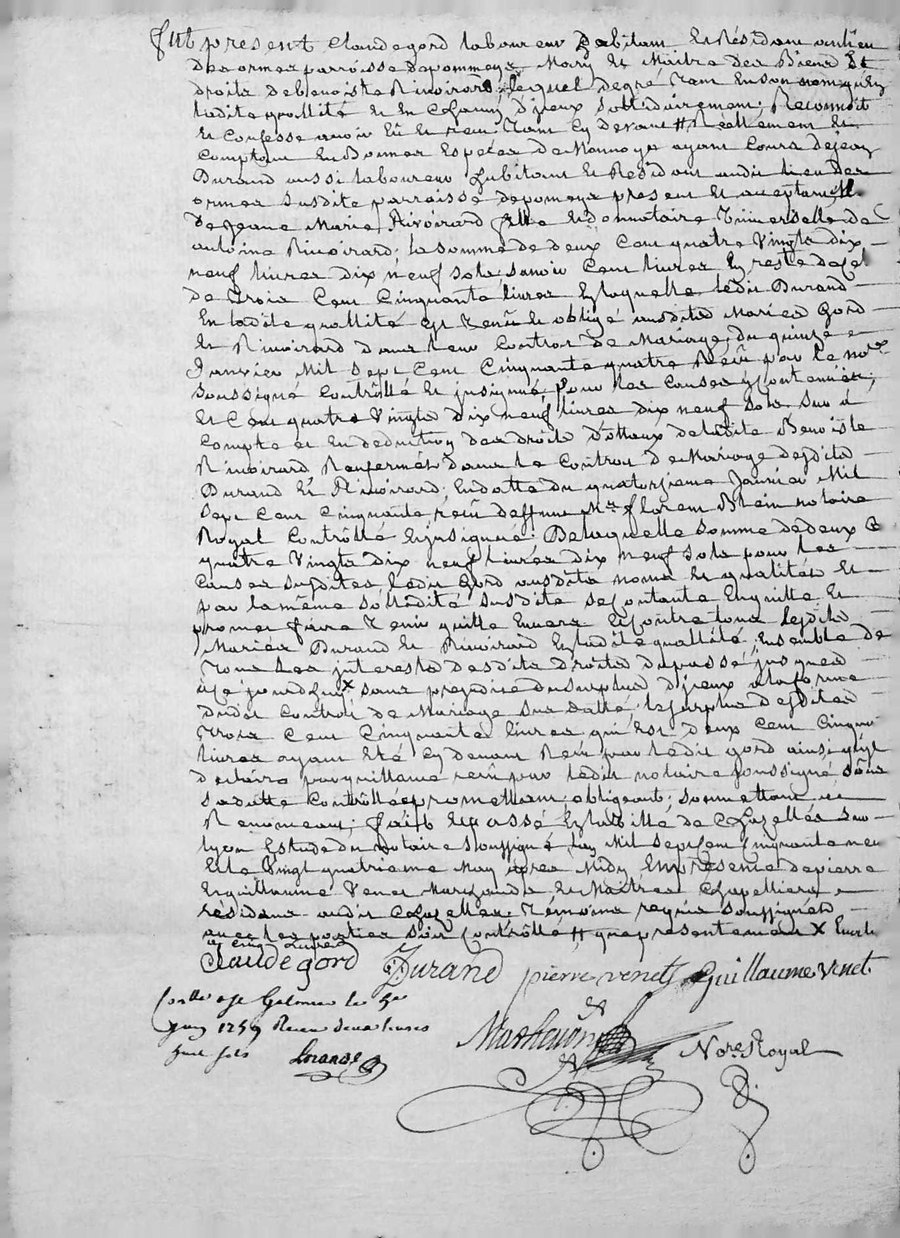 fut present Claude gord laboureur habitant et Résidant au lieu
des ormes parroisse de pommeys Mary et Maitre des Biens et
droits de benoiste Rivoirard lequel de gré tant en son nom qu'en
ladite quallité et en chacun d'jceux sollidairement, Reconnoit
et Confesse avoir Eû et receu tant cy devant # Réellement et
comptant En Bonnes Especes de Monnoye ayant Cours de jean
Durand aussi laboureur habitant et Residant audit lieu des
ormes susdite parroisse de pomeys present et acceptant M
de jeanne Marie Rivoirard fille et donnataire universelle de
antoine Rivoirard, la somme de deux Cent quatre Vingts dix
neuf livres dix neuf sols, sanoir Cent livres En reste de cel
de trois Cent Cinquante livres Es laquelle ledit Durand
En ladite quallité est tenû et obligé ausdits Mariés Gord
et Rivoirard dans leur Contrat de Mariage du quinze
Janvier Mil Sept Cent Cinquante quatre Reçû par le nore
soussigné Contrôllé et jnsinué, pour les Causes y Contenües,
et Cent quatre Vingts dix neuf livres dix neuf sols sur à
Compte et En deduction des droits de ladite Benoiste
Rivoirard Renfermés dans le Contrat de Mariage desdits
Durand et Rivoirard, En datte du quatorzieme Janvier Mil
Sept Cent Cinquante reçû deffunt Me florent Blein notaire
Royal Contrôllé et jnsinué. De laquelle somme de deux C
quatre Vingts dix neuf livres dix neuf sols pour les
Causes susdites ledit Gord ausdits noms et qualités et
par la même sollidité susdite se Contante En quitte et
promet faire tenir quitte Envers et Contre tous lesdits
Mariés Durand et Rivoirard En ladite quallité, Ensemble de
tous les jnterests desdits droits du passé jusques
à ce jourd'huy x sans prejudice du surplus d'jceux à la forme
dudit Contrat de Mariage sus datté. le surplus desdites
trois Cent Cinquante livres qui est deux Cent Cinqu
livres ayant Eté cy devant Reçu par ledit gord ainsi qu'il
declaire par quittance reçû par ledit notaire soussigné sous
sa datte Contrôllée, promettant, obligeant, soumettant et
Renonceant, fait et passé En la Ville de Chazelles sur
lyon Estude du notaire soussigné L'an Mil Sept Cent Cinquante neuf
et le Vingt quatrieme May apres Midy En presence de pierre
et guillaume Venet Marchands et Maitres Chapelliers
résidant audit Chazelles, témoins requis soussignés
avec les parties soit Contrôllé # que presentement x Excepté
les cinq livres
Claude gord Durand pierre venet Guillaume venet
Conlle a St Galmier le 5e
juin 1759 Receu deux livres
huit sols
Nore Royal